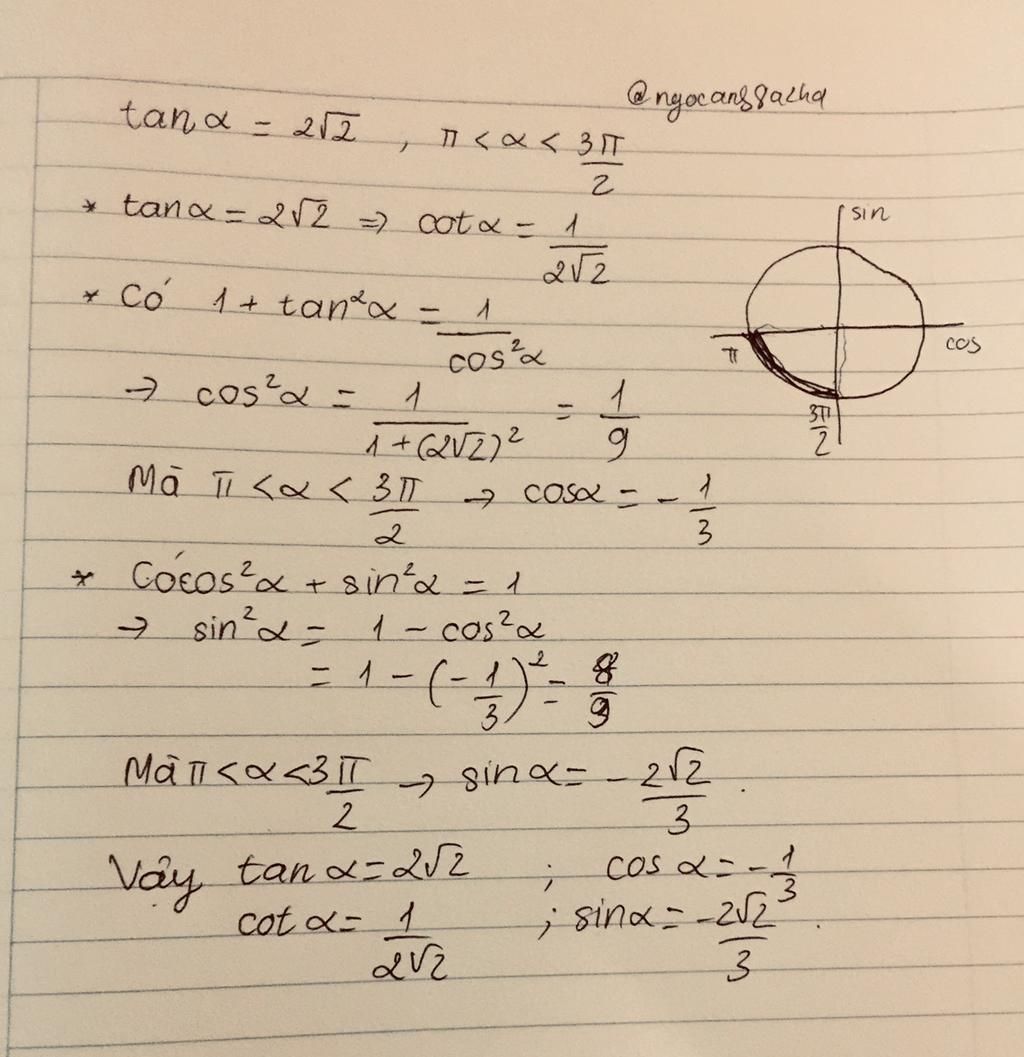 @ngocang8acha
tanα = 2√2 , π < α < 3π/2
* tanα = 2√2 ⇒ cotα = 1/2√2
* Có 1 + tan²α = 1/cos²α
→ cos²α = 1/1+(2√2)² = 1/9
Mà π < α < 3π/2 → cosα = -1/3
* Có cos²α + sin²α = 1
→ sin²α = 1 - cos²α
= 1 - (-1/3)² = 8/9
Mà π < α < 3π/2 → sinα = -2√2/3 .
Vậy tanα = 2√2 ; cosα = -1/3
cotα = 1/2√2 ; sinα = -2√2/3 .
sin
cos
π
3π/2